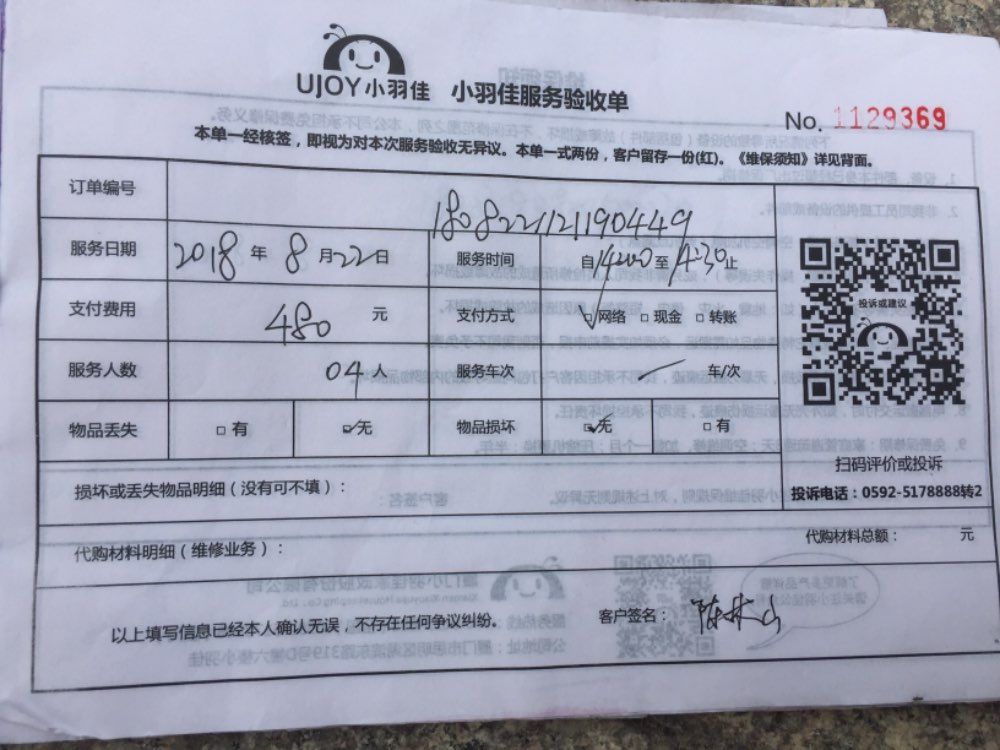 UJOY小羽佳 小羽佳服务验收单
No. 1129369
本单一经核签，即视为对本次服务验收无异议。本单一式两份，客户留存一份(红)。《维保须知》详见背面。
订单编号 1808221121190449
服务日期 2018 年 8 月 22 日 服务时间 自 14:00 至 14:30 止
支付费用 480 元 支付方式 ☑网络 □现金 □转账
投诉或建议
服务人数 04 人 服务车次 车/次
物品丢失 □有 ☑无 物品损坏 ☑无 □有
扫码评价或投诉
损坏或丢失物品明细（没有可不填）：
投诉电话：0592-5178888转2
代购材料明细（维修业务）： 代购材料总额： 元
以上填写信息已经本人确认无误，不存在任何争议纠纷。 客户签名： 陈